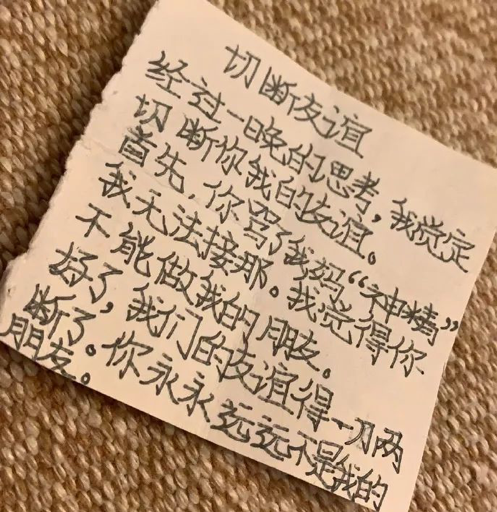 切断友谊
经过一晚的思考,我觉定
切断你我的友谊。
首先,你骂了我妈“神精”
我无法接那。我觉得你
不能做我的朋友。
好了,我们的友谊得一刀两
断了。你永永远远不是我的
朋友。